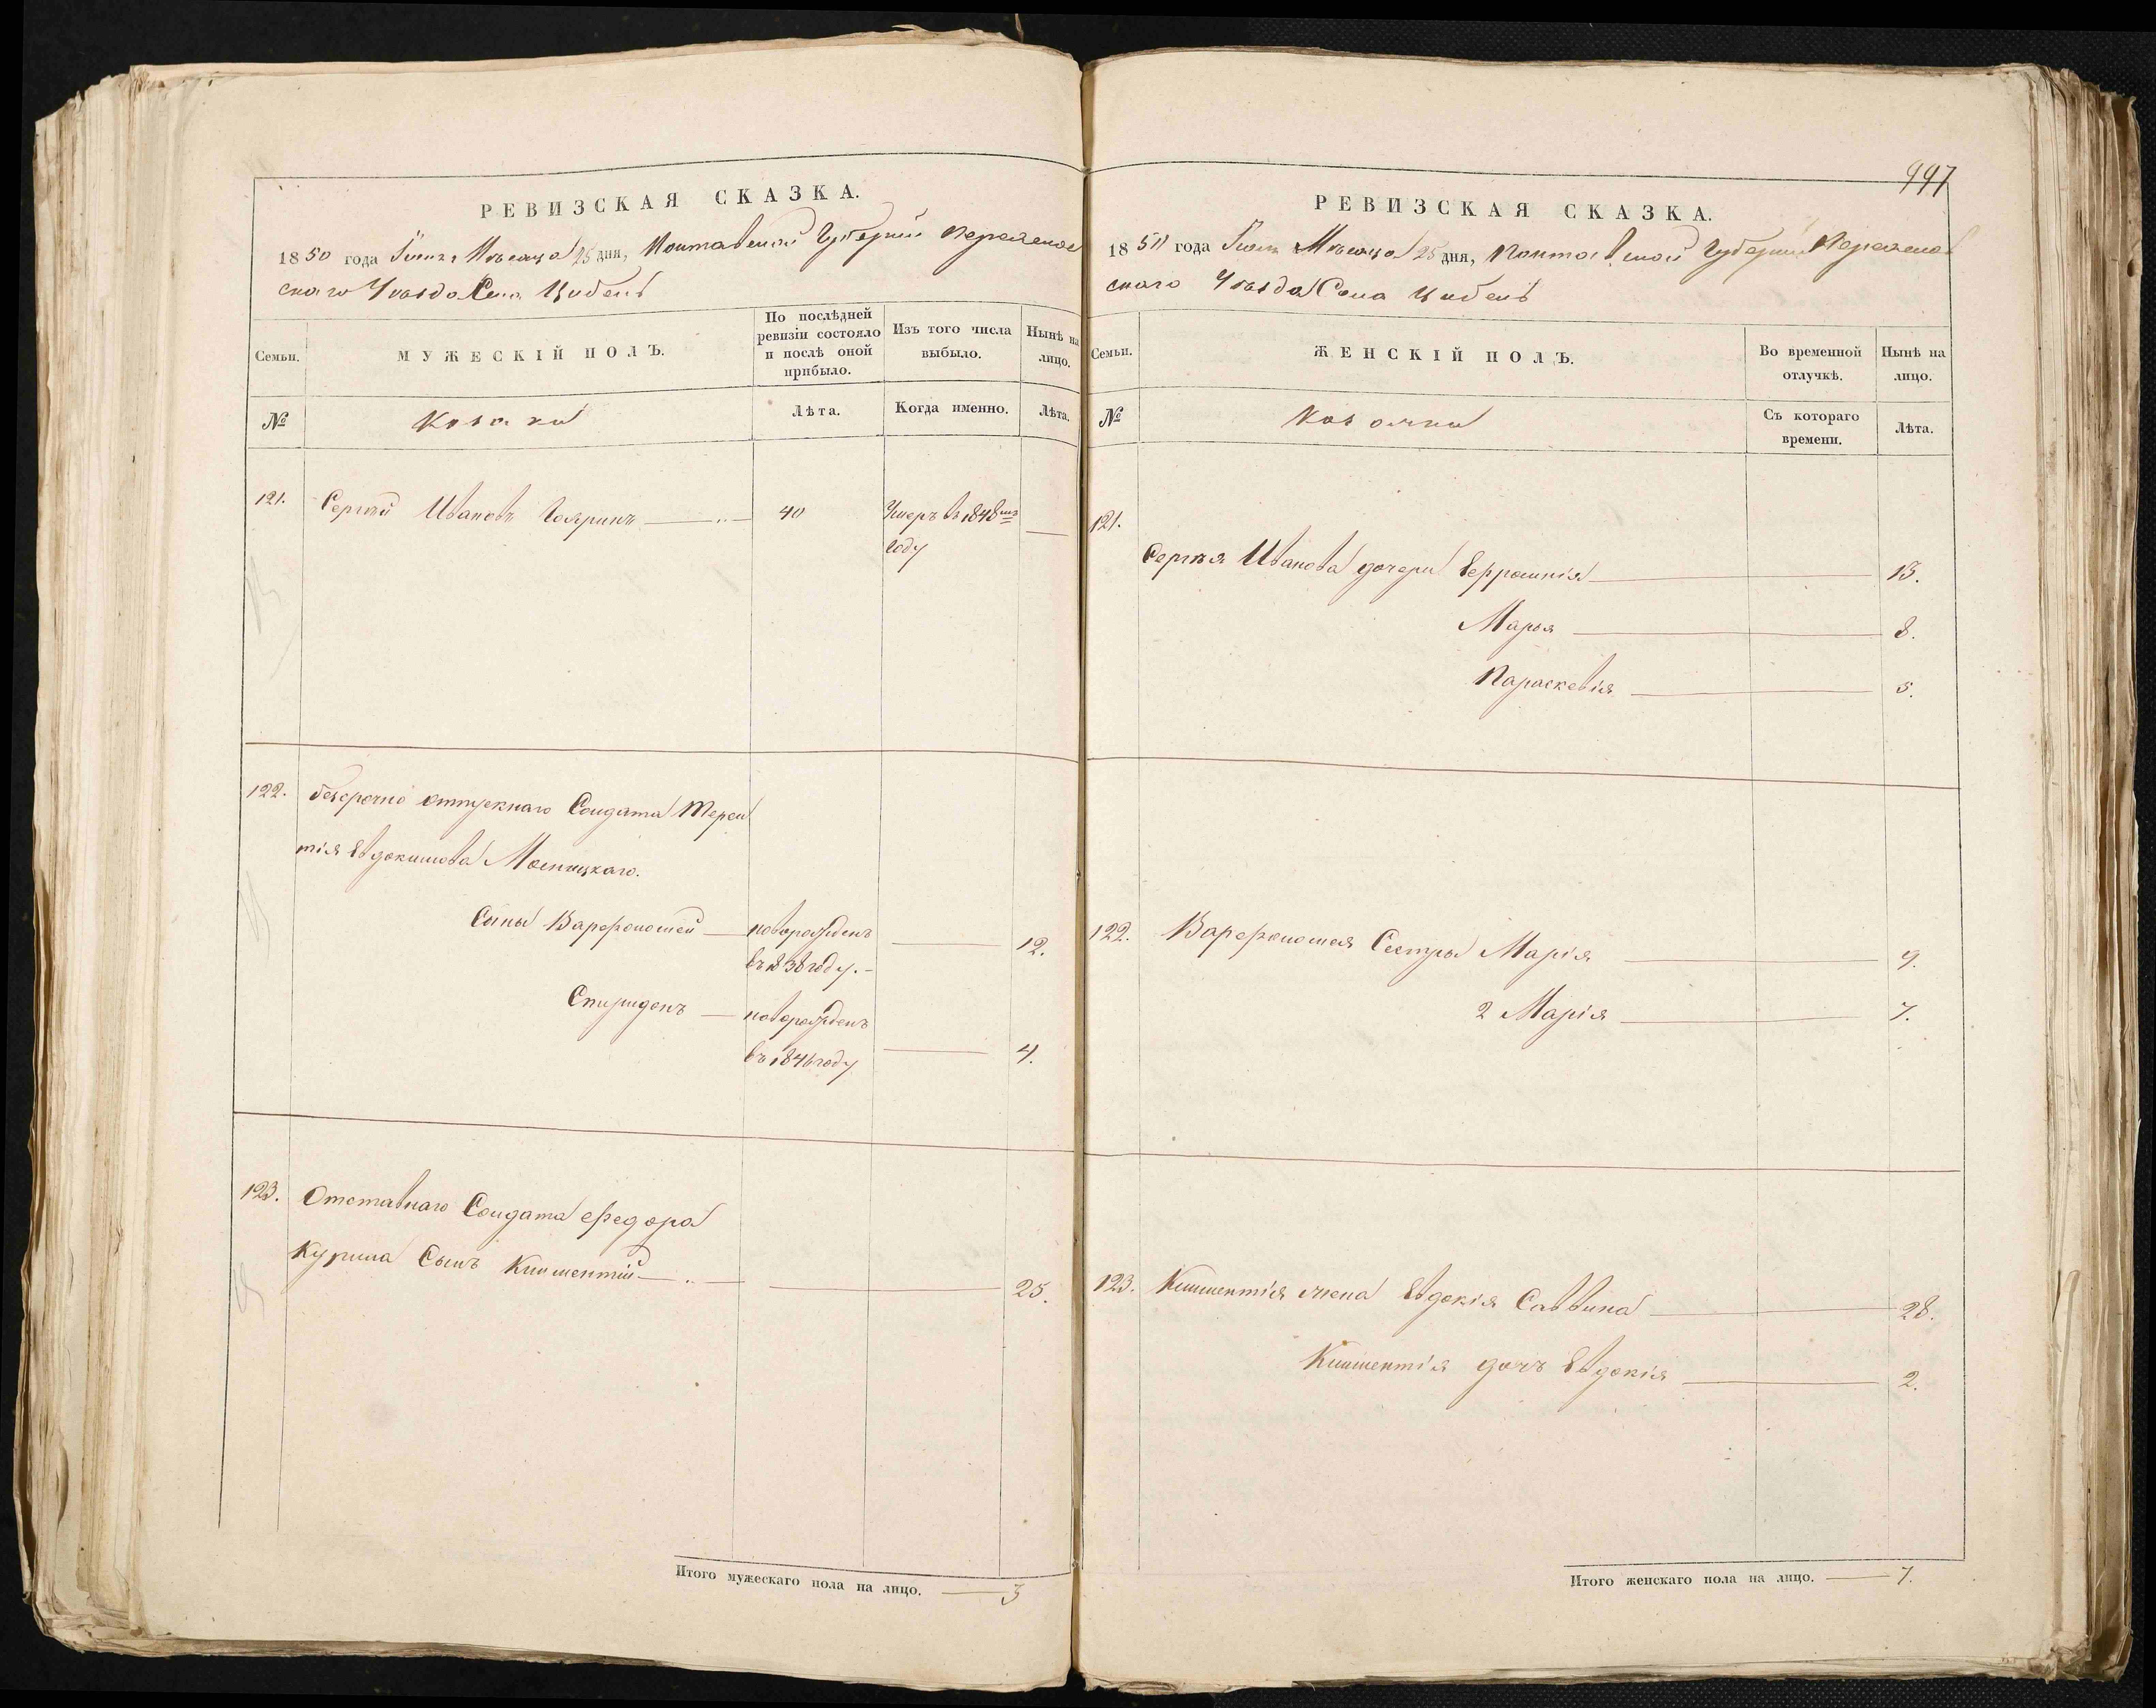 РЕВИЗСКАЯ СКАЗКА.
1850 года Июня Мѣсяца 25 дня, Полтавской Губерніи Переяслав
скаго Уѣзда Села Цибель
Семьи.
МУЖЕСКІЙ ПОЛЪ.
По послѣдней ревизіи состояло и послѣ оной прибыло.
Изъ того числа выбыло.
Нынѣ на лицо.
№
Козаки
Лѣта.
Когда именно.
Лѣта.
121. Сергѣй Ивановъ 40 Умеръ въ 1848мъ
году
122. безсрочно отпускнаго Солдата Терен
тія Евдокимова
Сыны Варфоломей новорожденъ 12.
въ 1838 году.
Спиридонъ новорожденъ
въ 1846 году 4.
123. Отставнаго Солдата Федора
Сынъ Климентій 25.
Итого мужескаго пола на лицо. 3
997
РЕВИЗСКАЯ СКАЗКА.
1850 года Июня Мѣсяца 25 дня, Полтавской Губерніи Переяслав
скаго Уѣзда Села Цибель
Семьи.
ЖЕНСКІЙ ПОЛЪ.
Во временной отлучкѣ.
Нынѣ на лицо.
№
Козачки
Съ котораго времени.
Лѣта.
121.
Сергѣя Иванова дочери 13.
Марья 8.
Параскевія 5.
122. Варфоломея Сестры Марія 9.
2 Марія 7.
123. Климентія жена Евдокія Саввина 28.
Климентія дочь Евдокія 2.
Итого женскаго пола на лицо. 7.